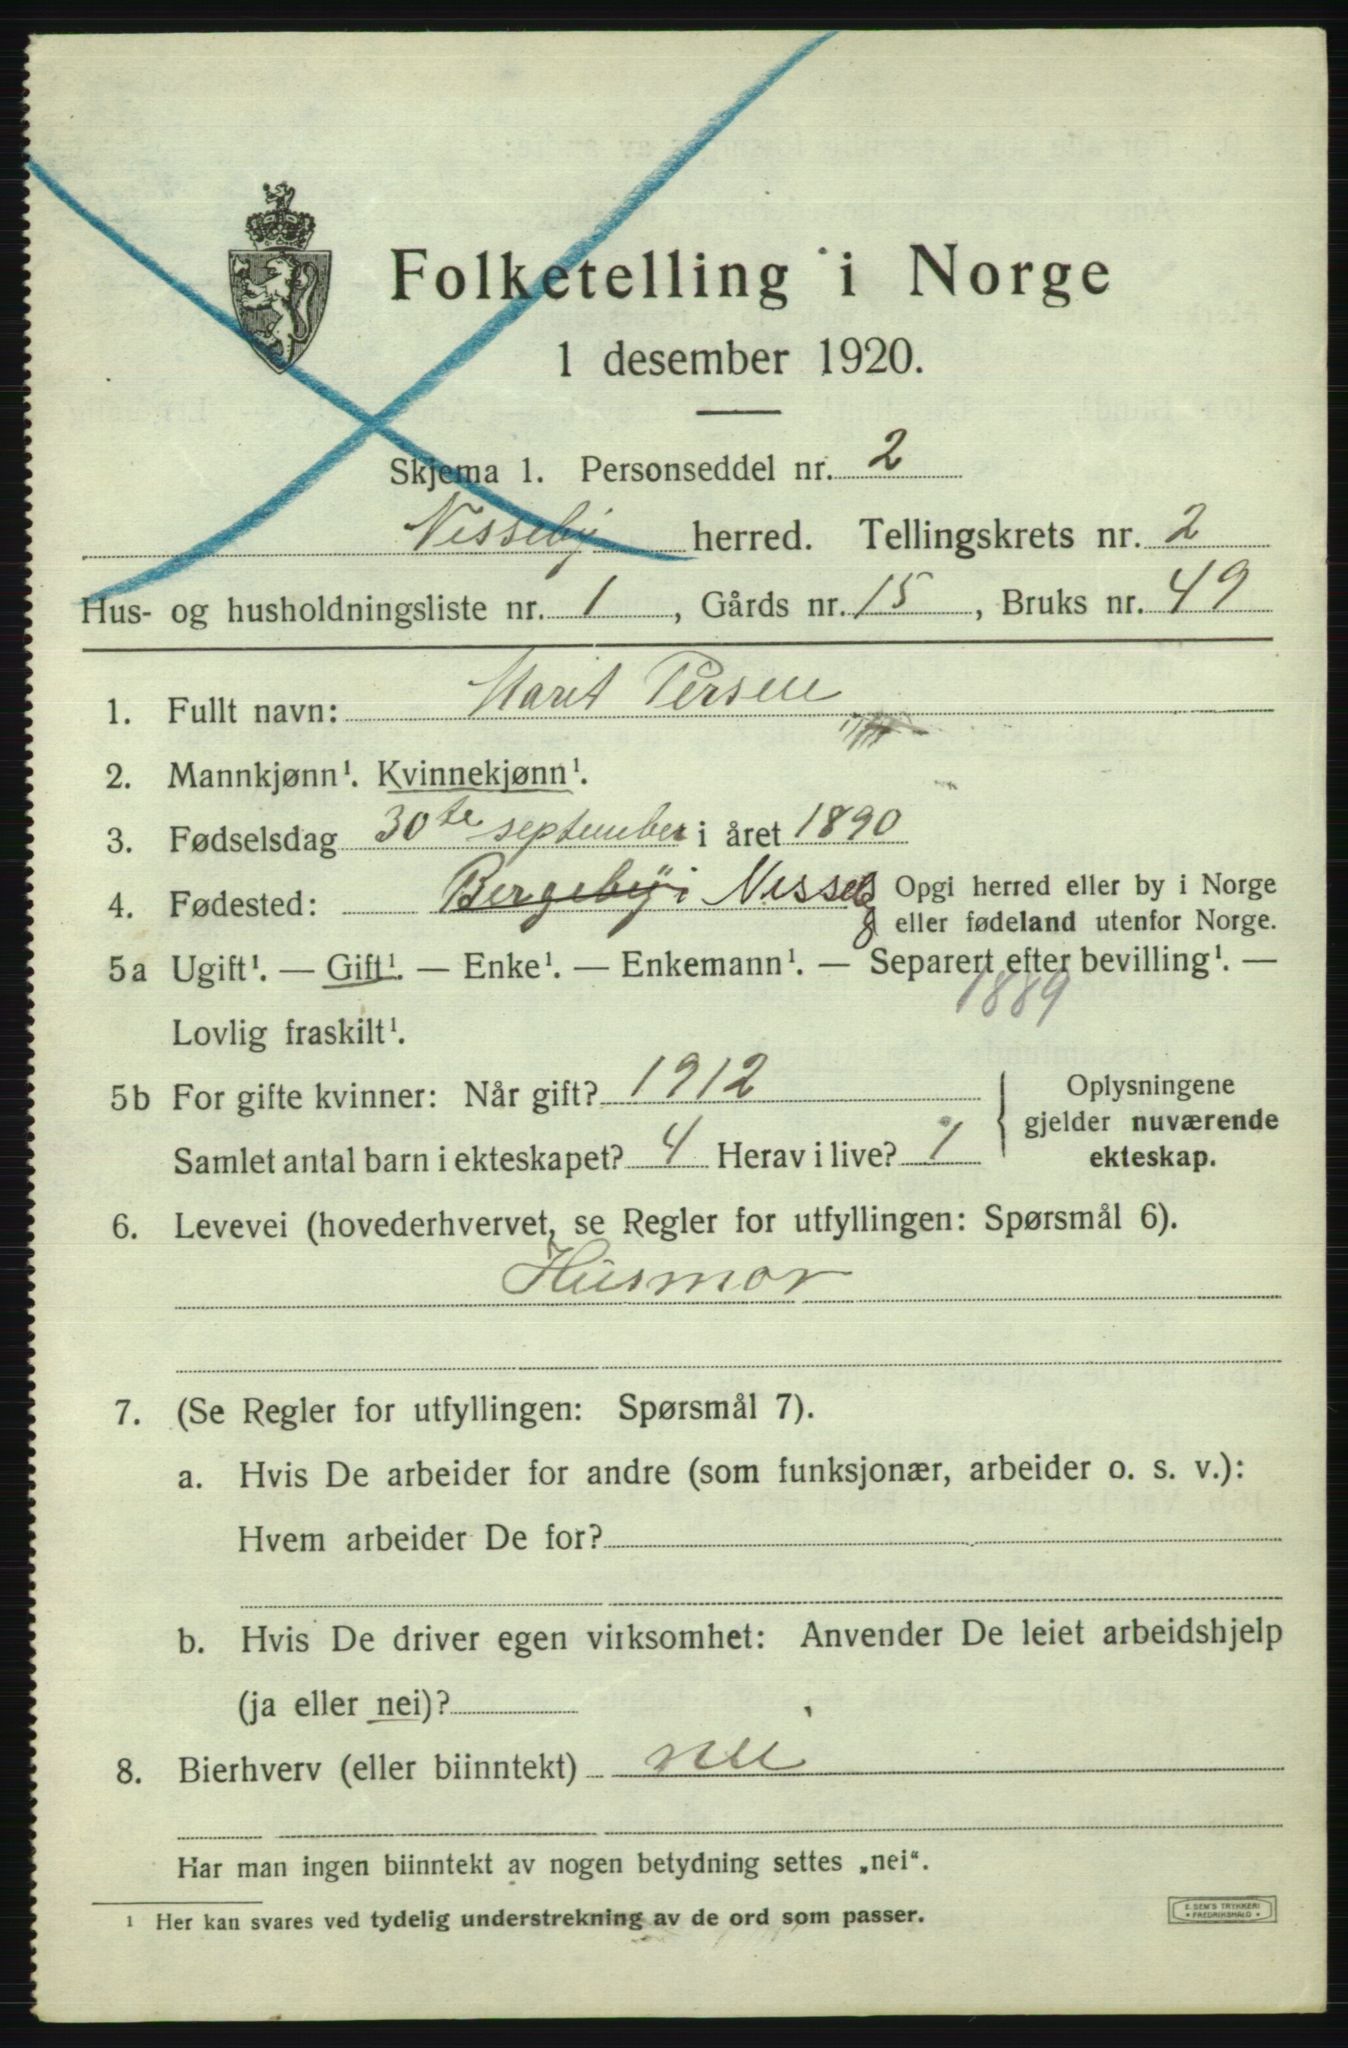 Folketelling i Norge
1 desember 1920.
Skjema 1. Personseddel nr. 2
Nesseby herred. Tellingskrets nr. 2
Hus- og husholdningsliste nr. 1, Gårds nr. 15, Bruks nr. 49
1. Fullt navn: Marit Persen
2. Mannkjønn¹. Kvinnekjønn¹.
3. Fødselsdag 30te september i året 1890
4. Fødested: Bergeby i Nesseby Opgi herred eller by i Norge
eller fødeland utenfor Norge.
5a Ugift¹. — Gift¹. — Enke¹. — Enkemann¹. — Separert efter bevilling¹. —
1889
Lovlig fraskilt¹.
5b For gifte kvinner: Når gift? 1912
Samlet antal barn i ekteskapet? 4 Herav i live? 1
Oplysningene
gjelder nuværende
ekteskap.
6. Levevei (hovederhvervet, se Regler for utfyllingen: Spørsmål 6).
Husmor
7. (Se Regler for utfyllingen: Spørsmål 7).
a. Hvis De arbeider for andre (som funksjonær, arbeider o. s. v.):
Hvem arbeider De for?
b. Hvis De driver egen virksomhet: Anvender De leiet arbeidshjelp
(ja eller nei)?
8. Bierhverv (eller biinntekt) nei
Har man ingen biinntekt av nogen betydning settes „nei“.
¹ Her kan svares ved tydelig understrekning av de ord som passer.
E. SEM'S TRYKKERI
FREDRIKSHALD